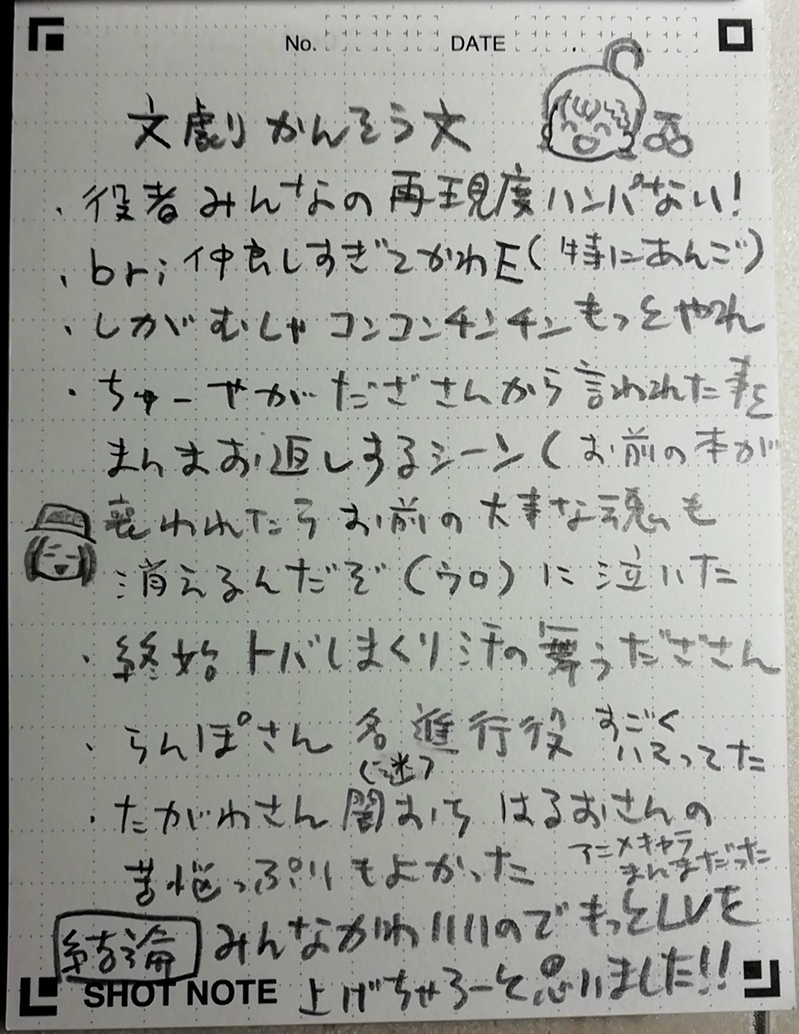 No. DATE
文劇かんそう文
・役者みんなの再現度ハンパない!
・bri仲良しすぎてかわE(特にあんご)
・しがむしゃコンコンチンチンもっとやれ
・ちゅーやがだざさんから言われた事を
まんまお返しするシーン(お前の本が
襲われたらお前の大事な魂も
消えるんだぞ(うロ)に泣いた
・終始トバしまくり汗の舞うだざさん
・らんぽさん 名進行役 すごく
(迷) ハマってた
・たがわさん闇おち はるおさんの
苦悩っぷりもよかった アニメキャラ
まんまだった
結論 みんなかわいいのでもっとLVを
上げちゃろーと思いました!!
SHOT NOTE